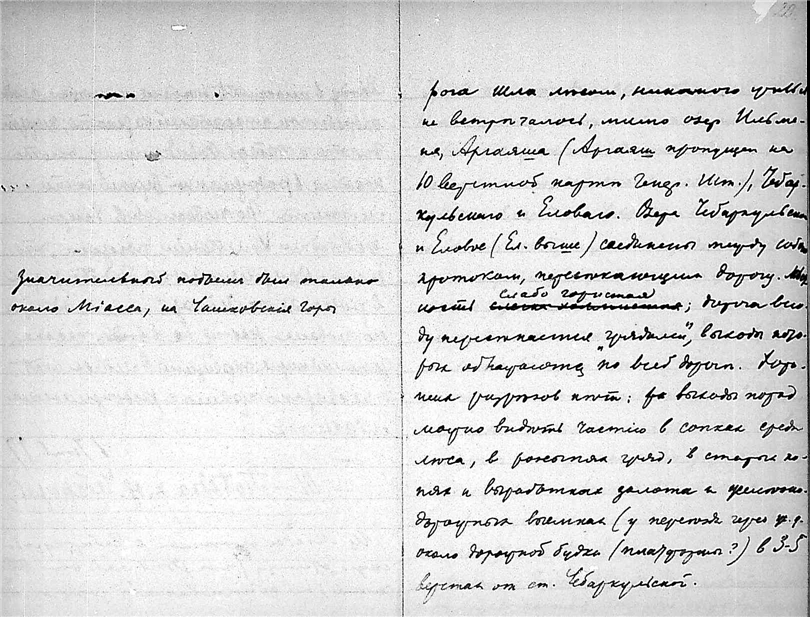 Значительный подъем был только
около Мiасса, на Чашковскiя горы
рога шла лѣсом, никакого
не встрѣчалось, мимо озер Ильме-
ня, Аргаяша (Аргаяш пропущен на
10 верстной картѣ Генер. Шт.), Чебар-
кульскаго и Еловаго. Озера Чебаркульское
и Еловое (Ел. выше) соединены между собою
протоком, пересѣкающим дорогу. Мѣст-
ность слабо гористая; дорога всю-
ду пересѣкается "грядами", выходы кото-
рых обнажаются по всей дороге. Хоро-
ших разрѣзов нѣт; выходы пород
можно видѣть частiю в сопках среди
лѣса, в гряд, в старых ко-
пях и выработках золота и желѣзно-
дорожных выемках (у переѣзда через ж. д.
около дорожной будки (платформы?) в 3-5
верстах от ст. Чебаркульской.